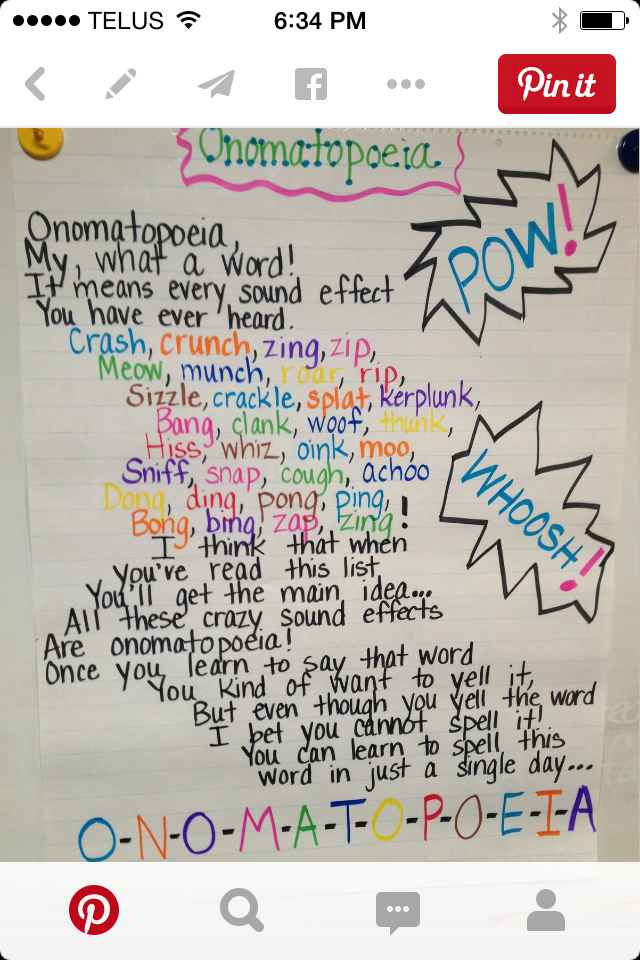 TELUS 6:34 PM
Pin it
Onomatopoeia
POW!
Onomatopoeia,
My, what a word!
It means every sound effect
You have ever heard.
Crash, crunch, zing, zip,
Meow, munch, roar, rip,
Sizzle, crackle, splat, kerplunk,
Bang, clank, woof, thunk,
Hiss, whiz, oink, moo,
Sniff, snap, cough, achoo
Dong, ding, pong, ping,
Bong, bing, zap, zing!
WHOOSH!
I think that when
You've read this list
You'll get the main idea...
All these crazy sound effects
Are onomatopoeia!
Once you learn to say that word
You kind of want to yell it,
But even though you yell the word
I bet you cannot spell it!
You can learn to spell this
word in just a single day...
O-N-O-M-A-T-O-P-O-E-I-A